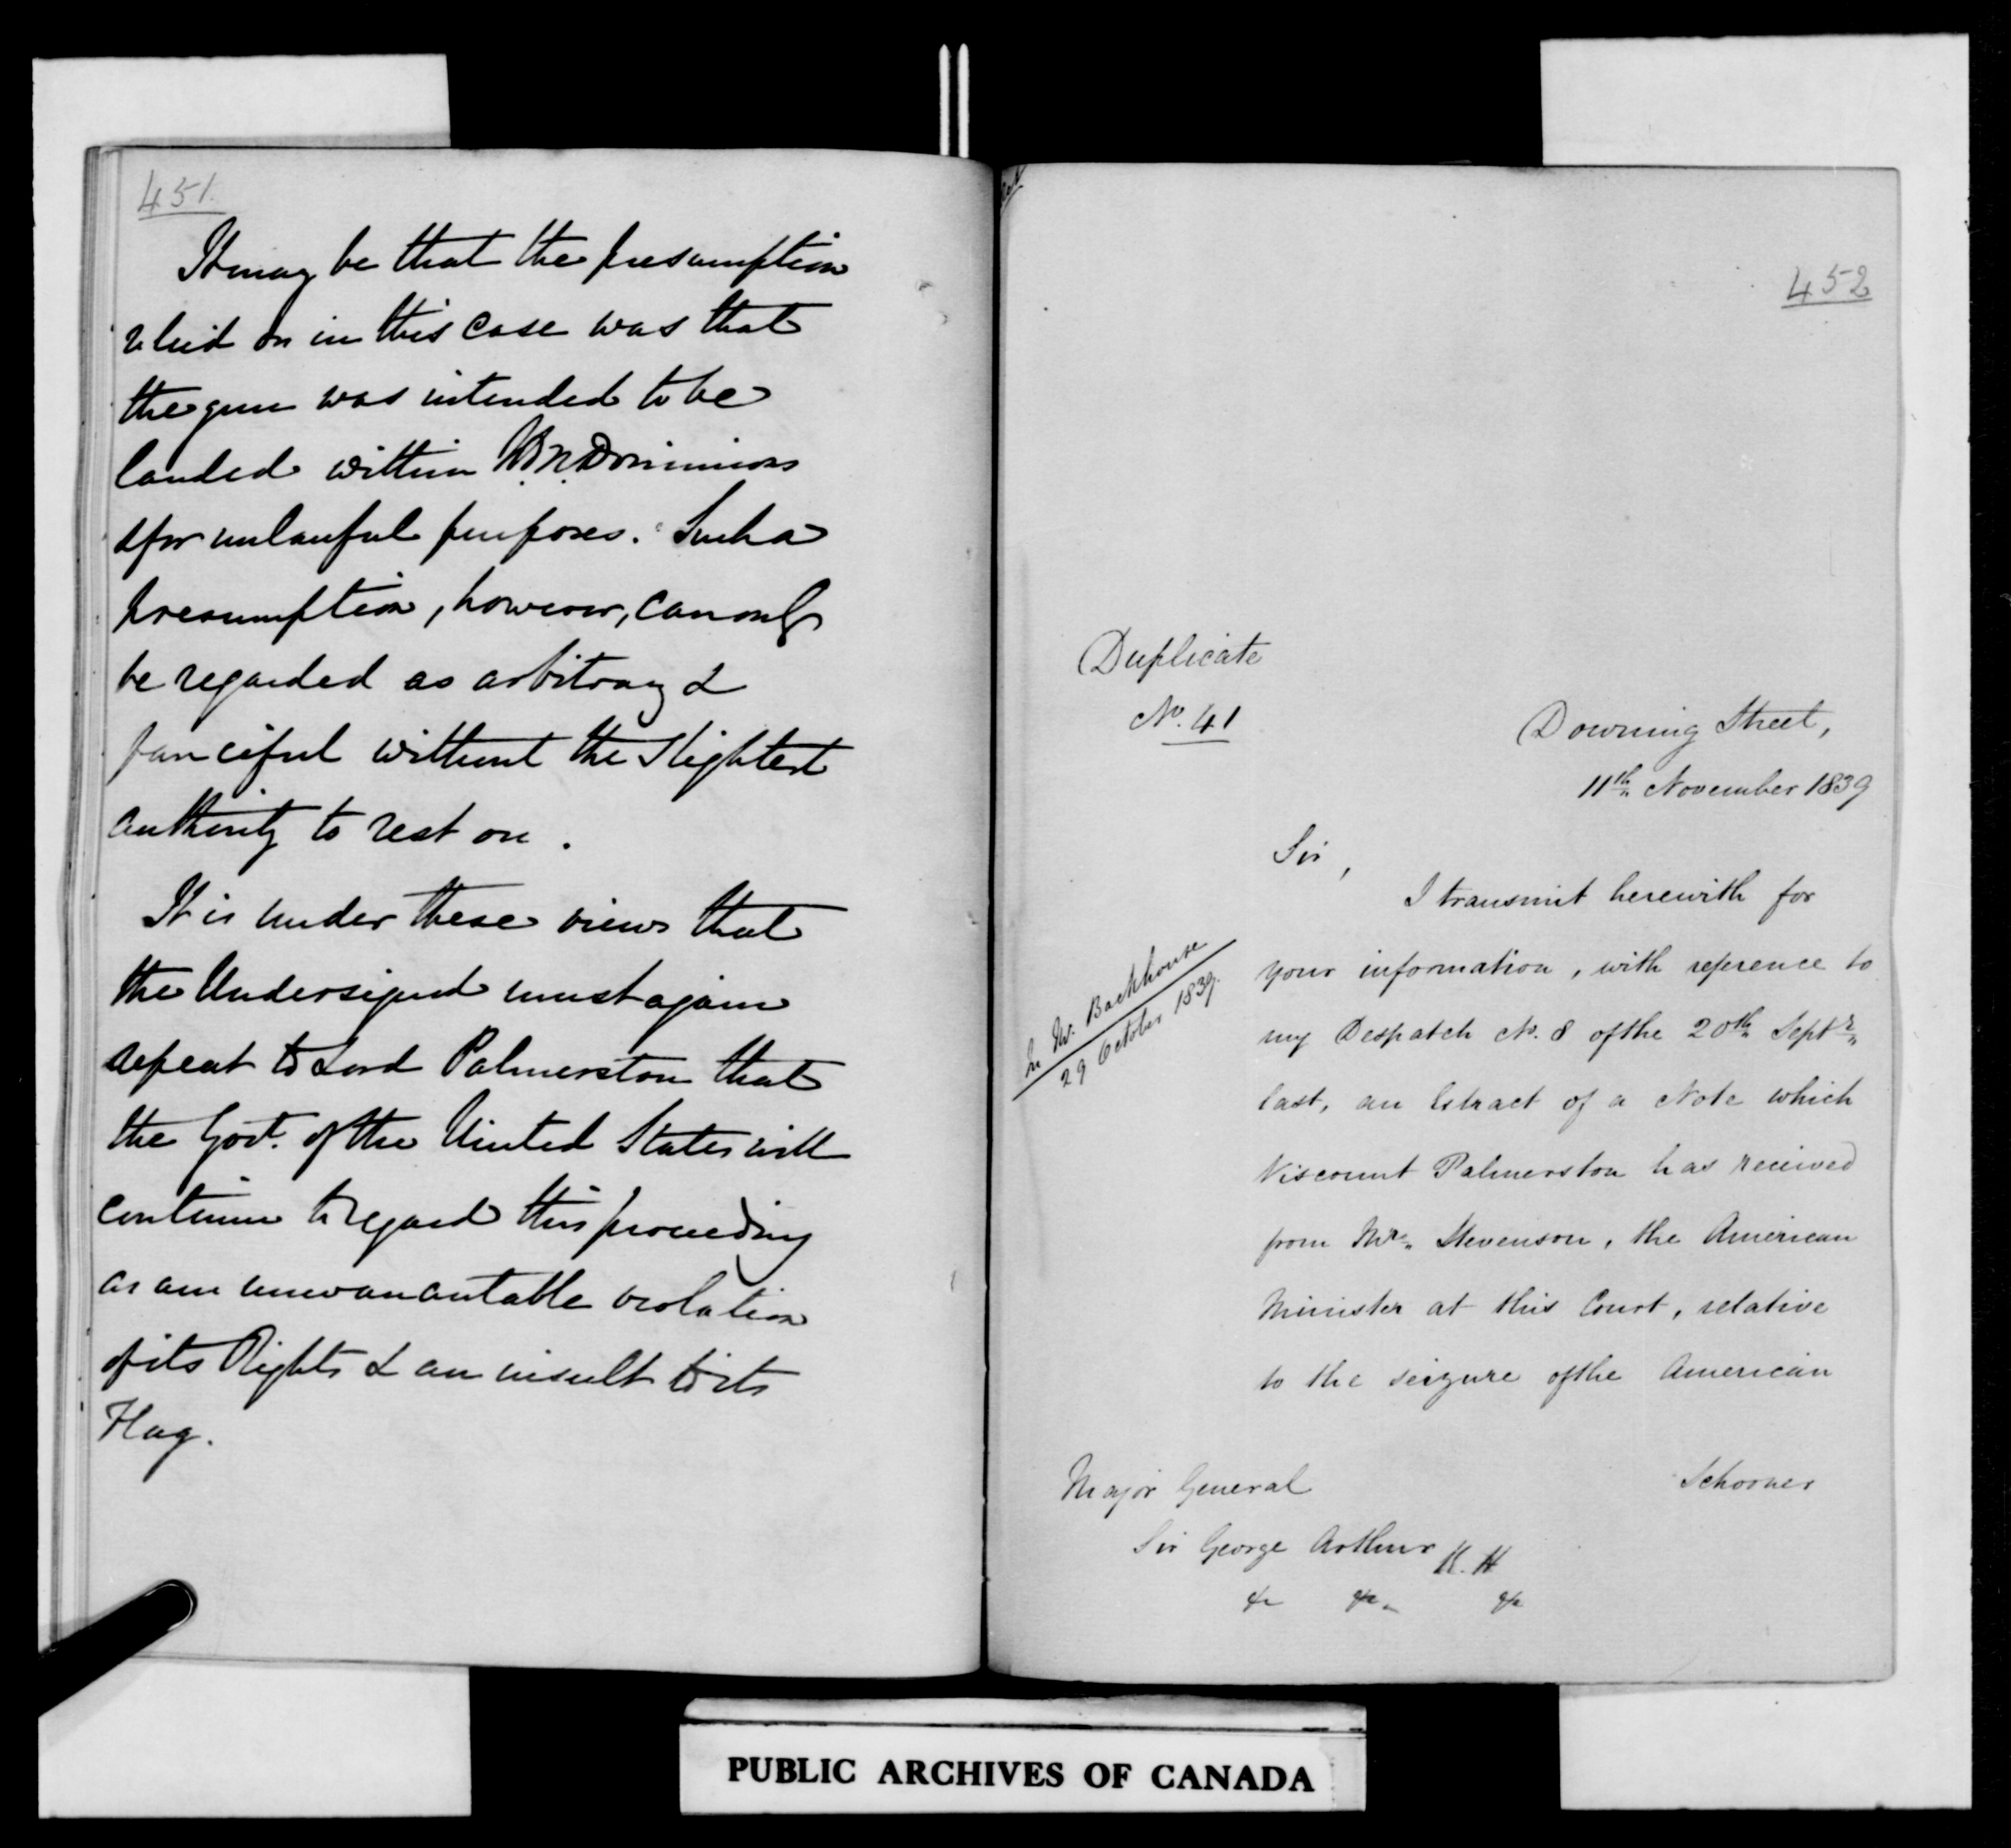 451.
It may be that the presumption
relied on in this case was that
the gun was intended to be
landed within H.M. Dominions
& for unlawful purposes. Such a
presumption, however, can only
be regarded as arbitrary &
fanciful without the slightest
authority to rest on.
It is under these views that
the Undersigned must again
repeat to Lord Palmerston that
the Govt. of the United States will
continue to regard this proceeding
as an unwarrantable violation
of its Rights & an insult to its
Flag.
452
Duplicate
No. 41
Downing Street,
11th November 1839
Sir,
I transmit herewith for
your information, with reference to
my Despatch No. 8 of the 20th Septr
last, an Extract of a Note which
Viscount Palmerston has received
from Mr. Stevenson, the American
Minister at this Court, relative
to the seizure of the American
Schooner
Mr. Backhouse
29 October 1839.
Major General
Sir George Arthur K.H
&c &c &c
PUBLIC ARCHIVES OF CANADA